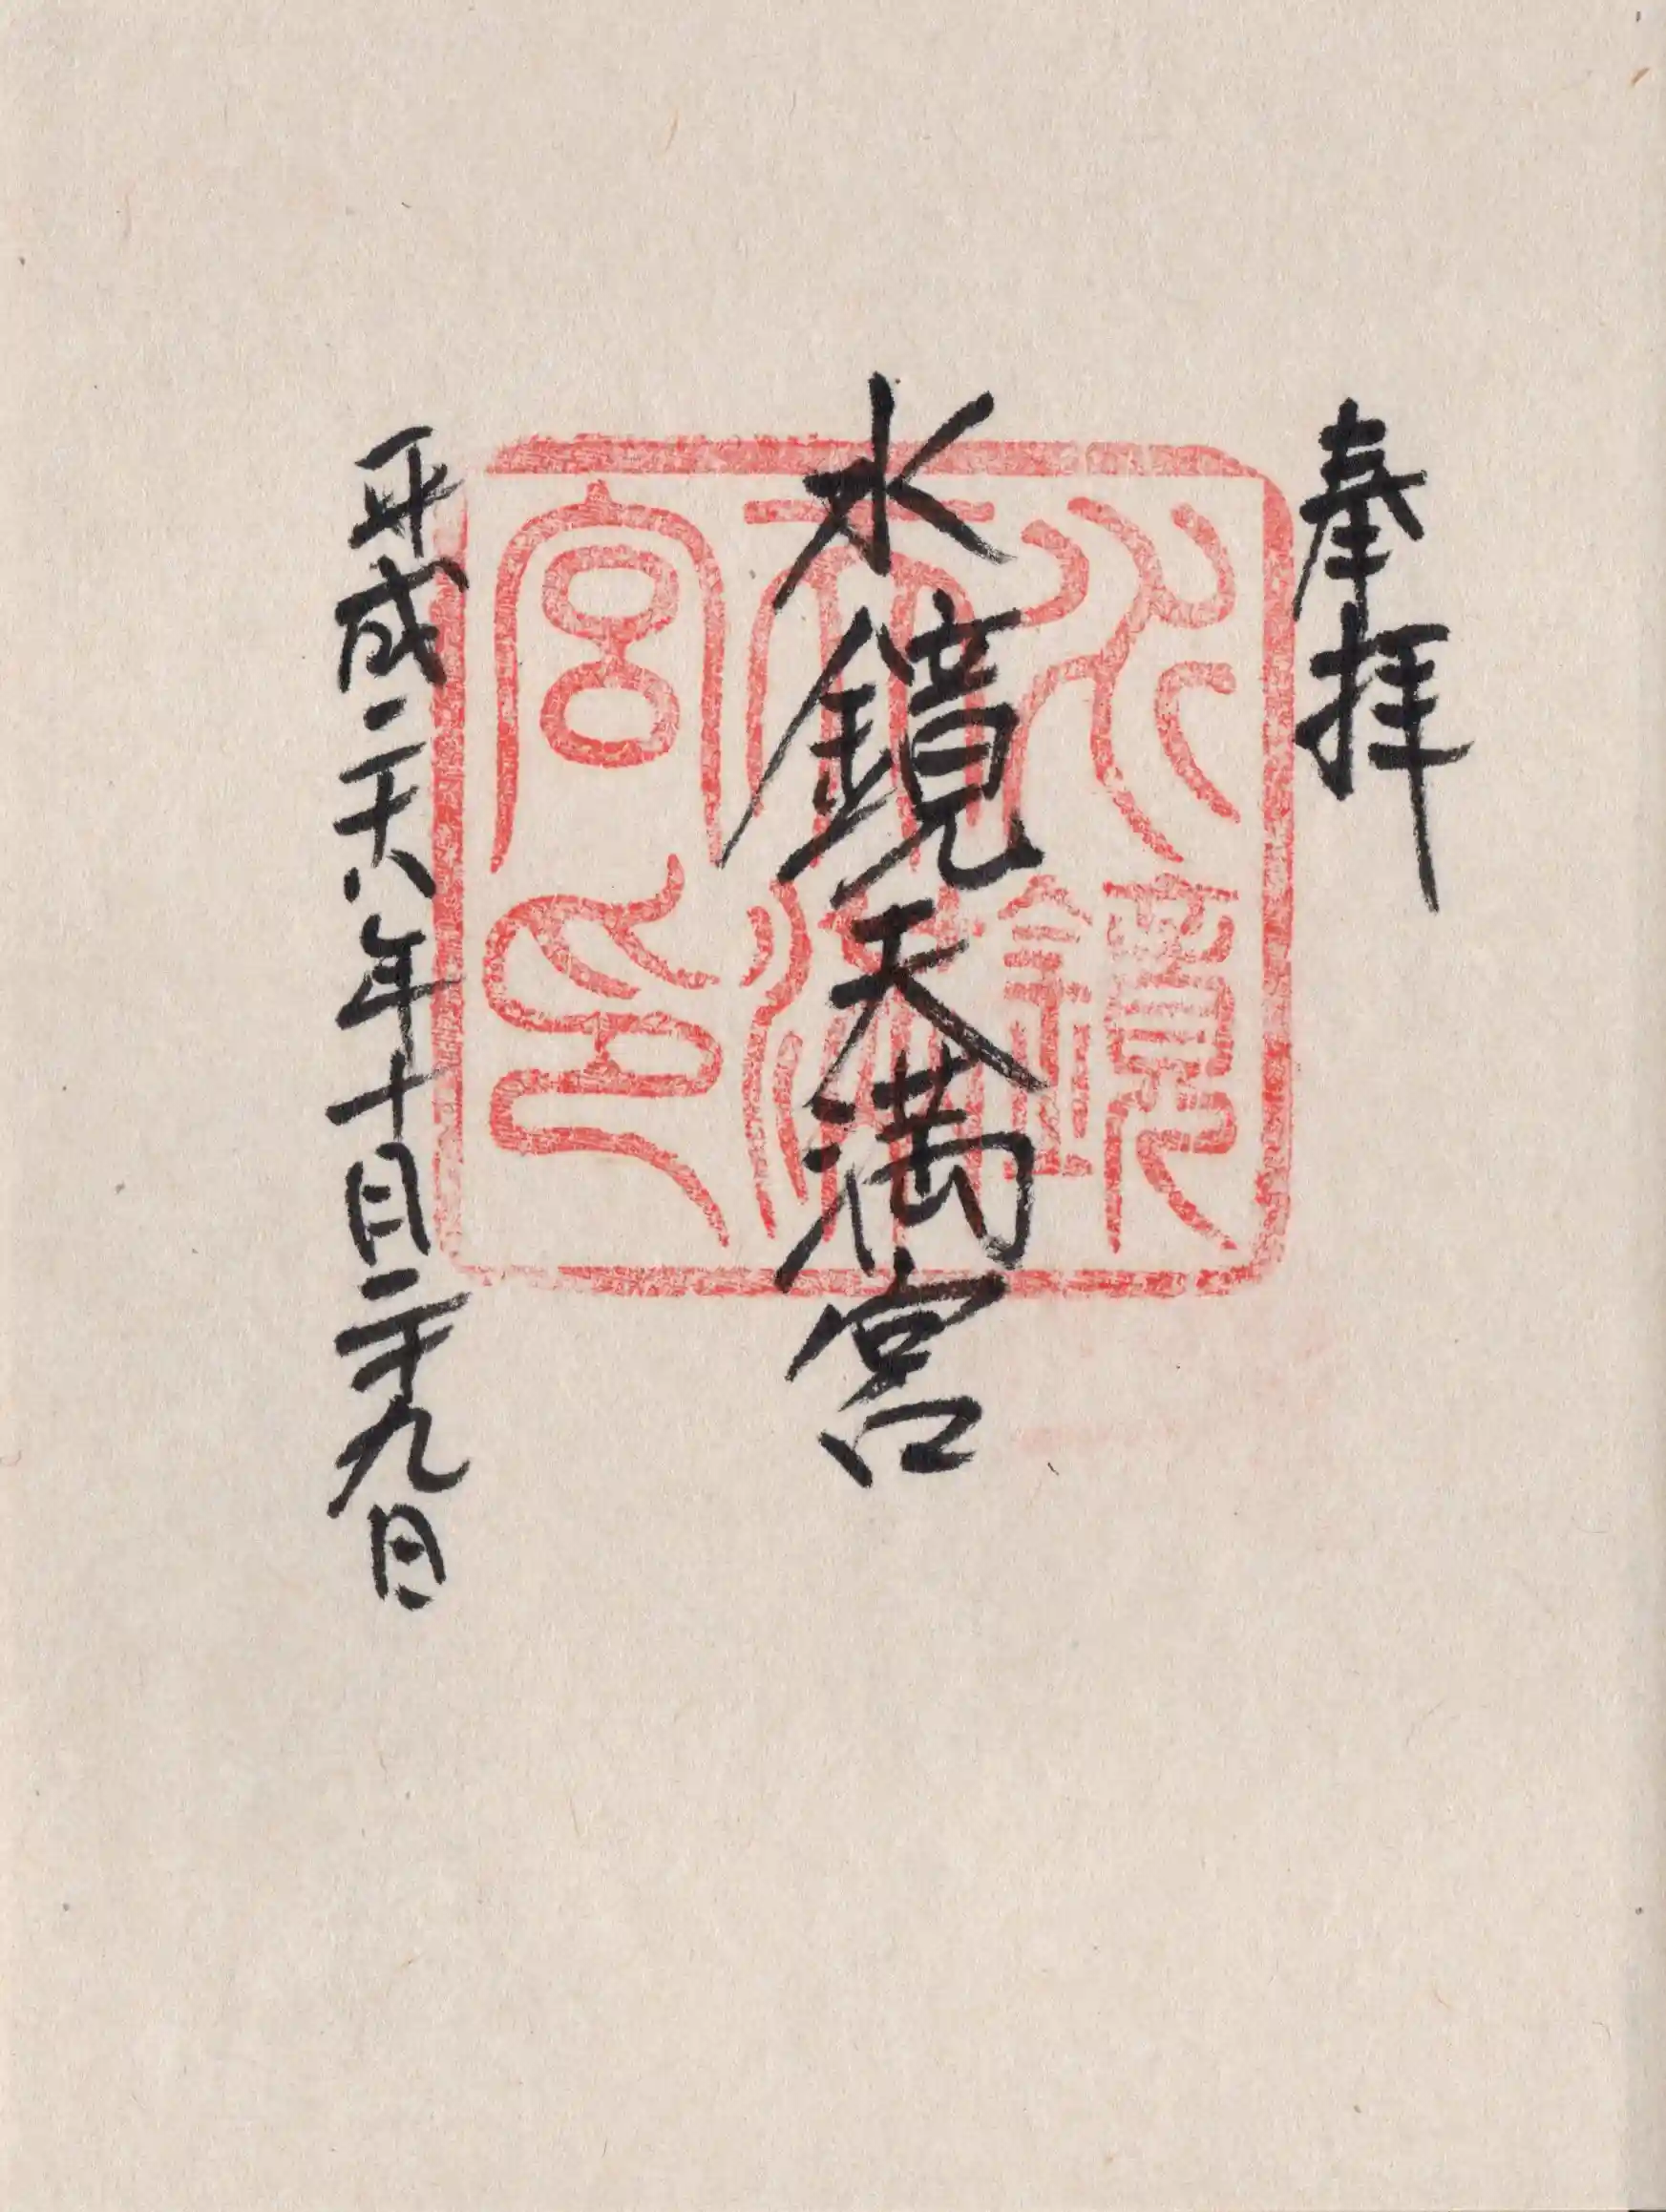 奉拝
水鏡天満宮
平成二十八年十月二十九日
水鏡
天満
宮印